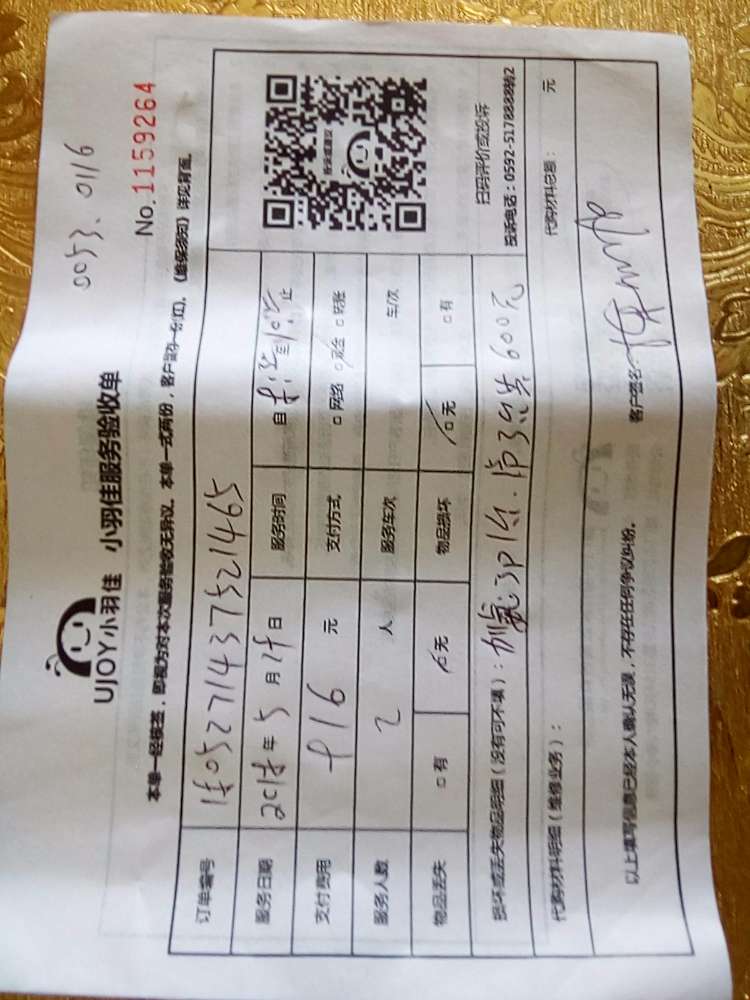 0053、0116
UJOY小羽佳 小羽佳服务验收单
No.1159264
本单一经核签，即视为对本次服务验收无异议。本单一式两份，客户留存一份(红)。《维保须知》详见背面。
订单编号 1805271437521465
服务日期 2018年5月29日 服务时间 自 至 止
支付费用 916元 支付方式 □网络 □现金 □转账
服务人数 2人 服务车次 车/次
物品丢失 □有 □无 物品损坏 □无 □有
投诉或建议
扫码评价或投诉
投诉电话：0592-5178888转2
损坏或丢失物品明细（没有可不填）： 600元
代购材料明细（维修业务）： 代购材料总额： 元
以上填写信息已经本人确认无误，不存在任何争议纠纷。 客户签名：